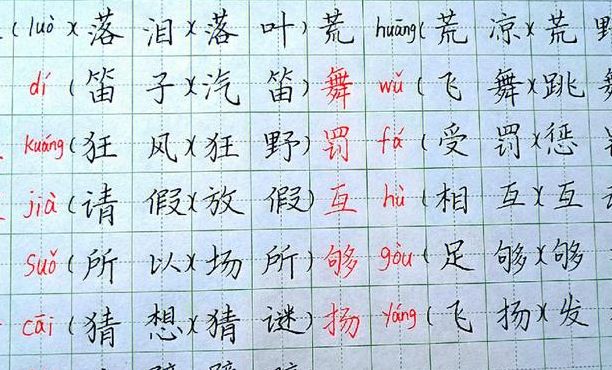 (luò)(落泪)(落叶)荒 huāng(荒凉)(荒野
dí(笛子)(汽笛)舞 wǔ(飞舞)(跳舞
kuáng(狂风)(狂野)罚 fá(受罚)(惩
jià(请假)(放假)互 hù(相互)(互
suǒ(所以)(场所)够 gòu(足够)(够
cāi(猜想)(猜谜)扬 yáng(飞扬)(发